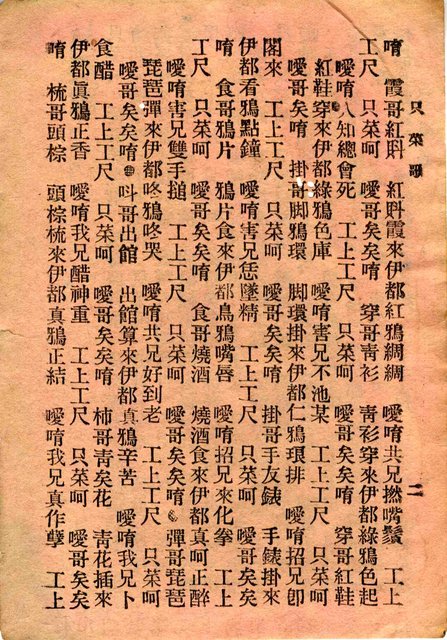 只菜歌 二
唷 霞哥紅 紅霞來伊都紅鴉綢綢 噯唷共兄撚嘴鬚 工上
工尺 只菜呵 噯哥矣矣唷 穿哥靑衫 靑衫穿來伊都綠鴉色起
噯唷人知總會死 工上工尺 只菜呵 噯哥矣矣唷 穿哥紅鞋
紅鞋穿來伊都綠鴉色庫 噯唷害兄不池某 工上工尺 只菜呵
噯哥矣矣唷 掛哥脚鴉環 脚環掛來伊都仁鴉環排 噯唷招兄卽
閣來 工上工尺 只菜呵 噯哥矣矣唷 掛哥手友錶 手錶掛來
伊都看鴉點鐘 噯唷害兄恁墜精 工上工尺 只菜呵 噯哥矣矣
唷 食哥鴉片 鴉片食來伊都烏鴉嘴唇 噯唷招兄來化拳 工上
工尺 只菜呵 噯哥矣矣唷 食哥燒酒 燒酒食來伊都真呵正醉
噯唷害兄雙手搥 工上工尺 只菜呵 噯哥矣矣唷 彈哥琵琶
琵琶彈來伊都咚鴉咚哭 噯唷共兄好到老 工上工尺 只菜呵
噯哥矣矣唷 呌哥出館 出館算來伊都真鴉辛苦 噯唷我兄卜
食醋 工上工尺 只菜呵 噯哥矣矣唷 柿哥靑矣花 靑花插來
伊都眞鴉正香 噯唷我兄醋神重 工上工尺 只菜呵 噯哥矣矣
唷 梳哥頭棕 頭棕梳來伊都真鴉正結 噯唷我兄真作孽 工上